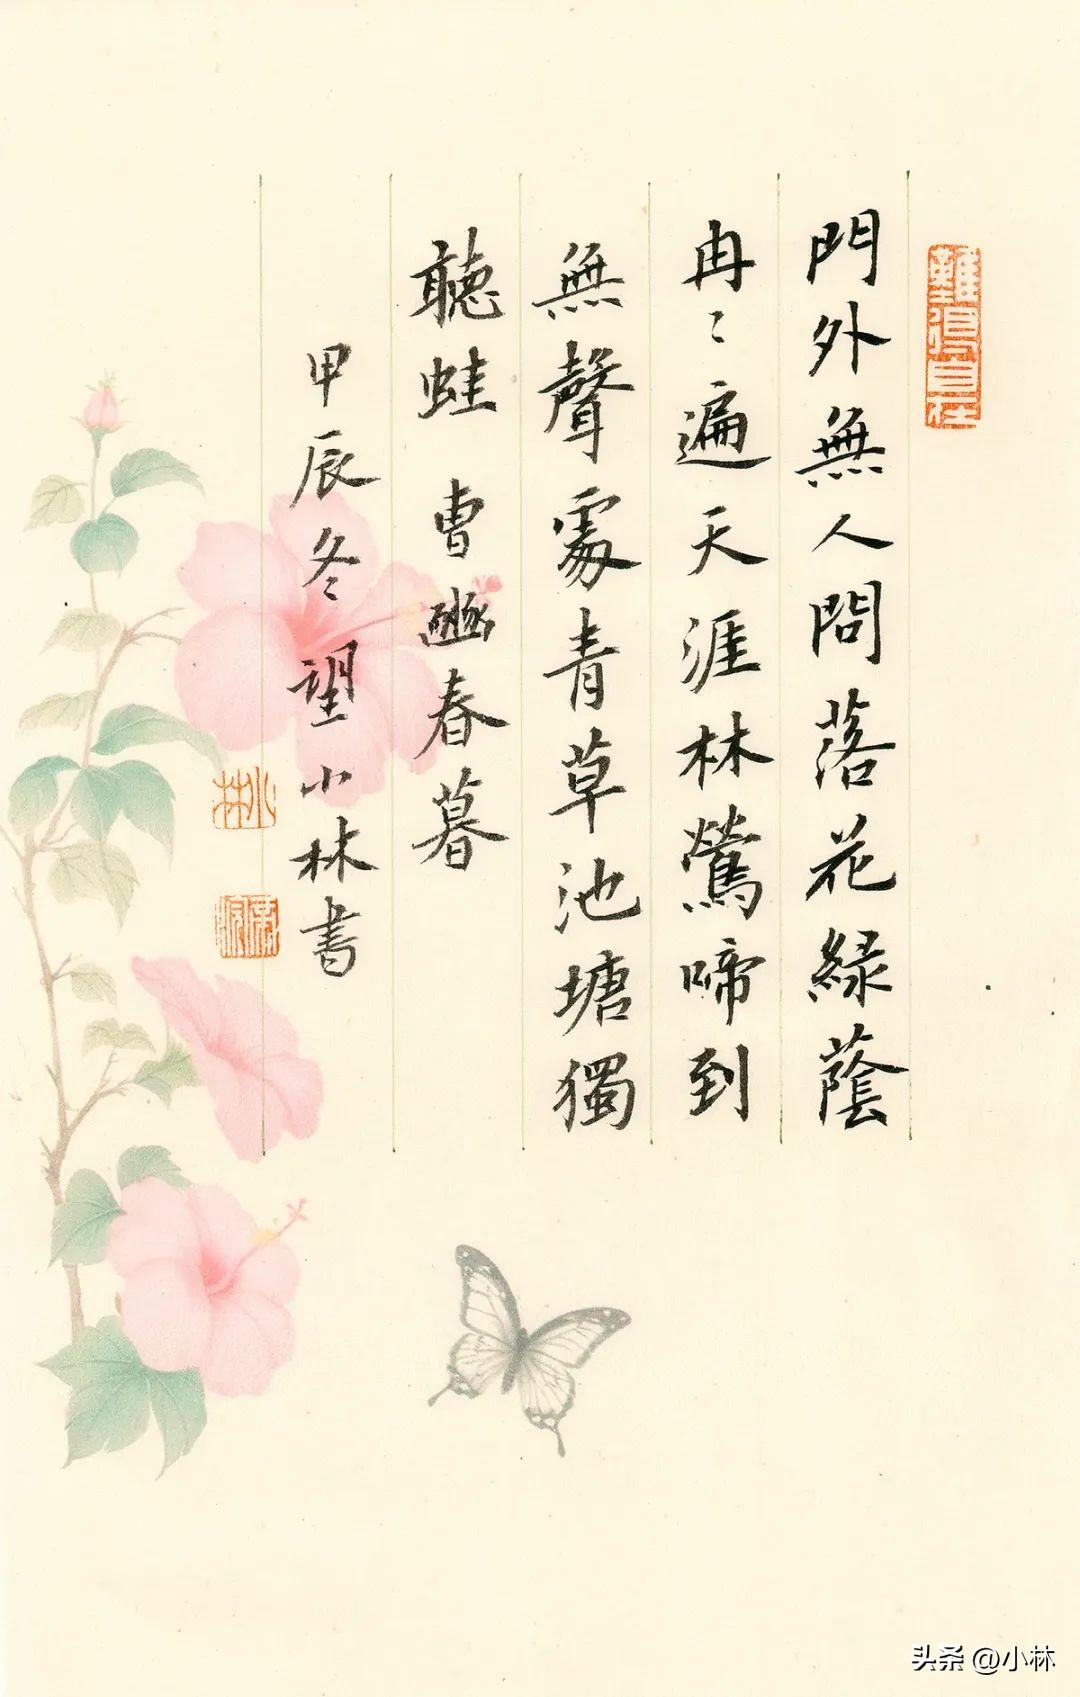 難得自在
門外無人問落花緑蔭
冉〻遍天涯林鶯啼到
無聲處青草池塘獨
聽蛙 曹豳春暮
甲辰冬望小林書
小林
头条 @小林